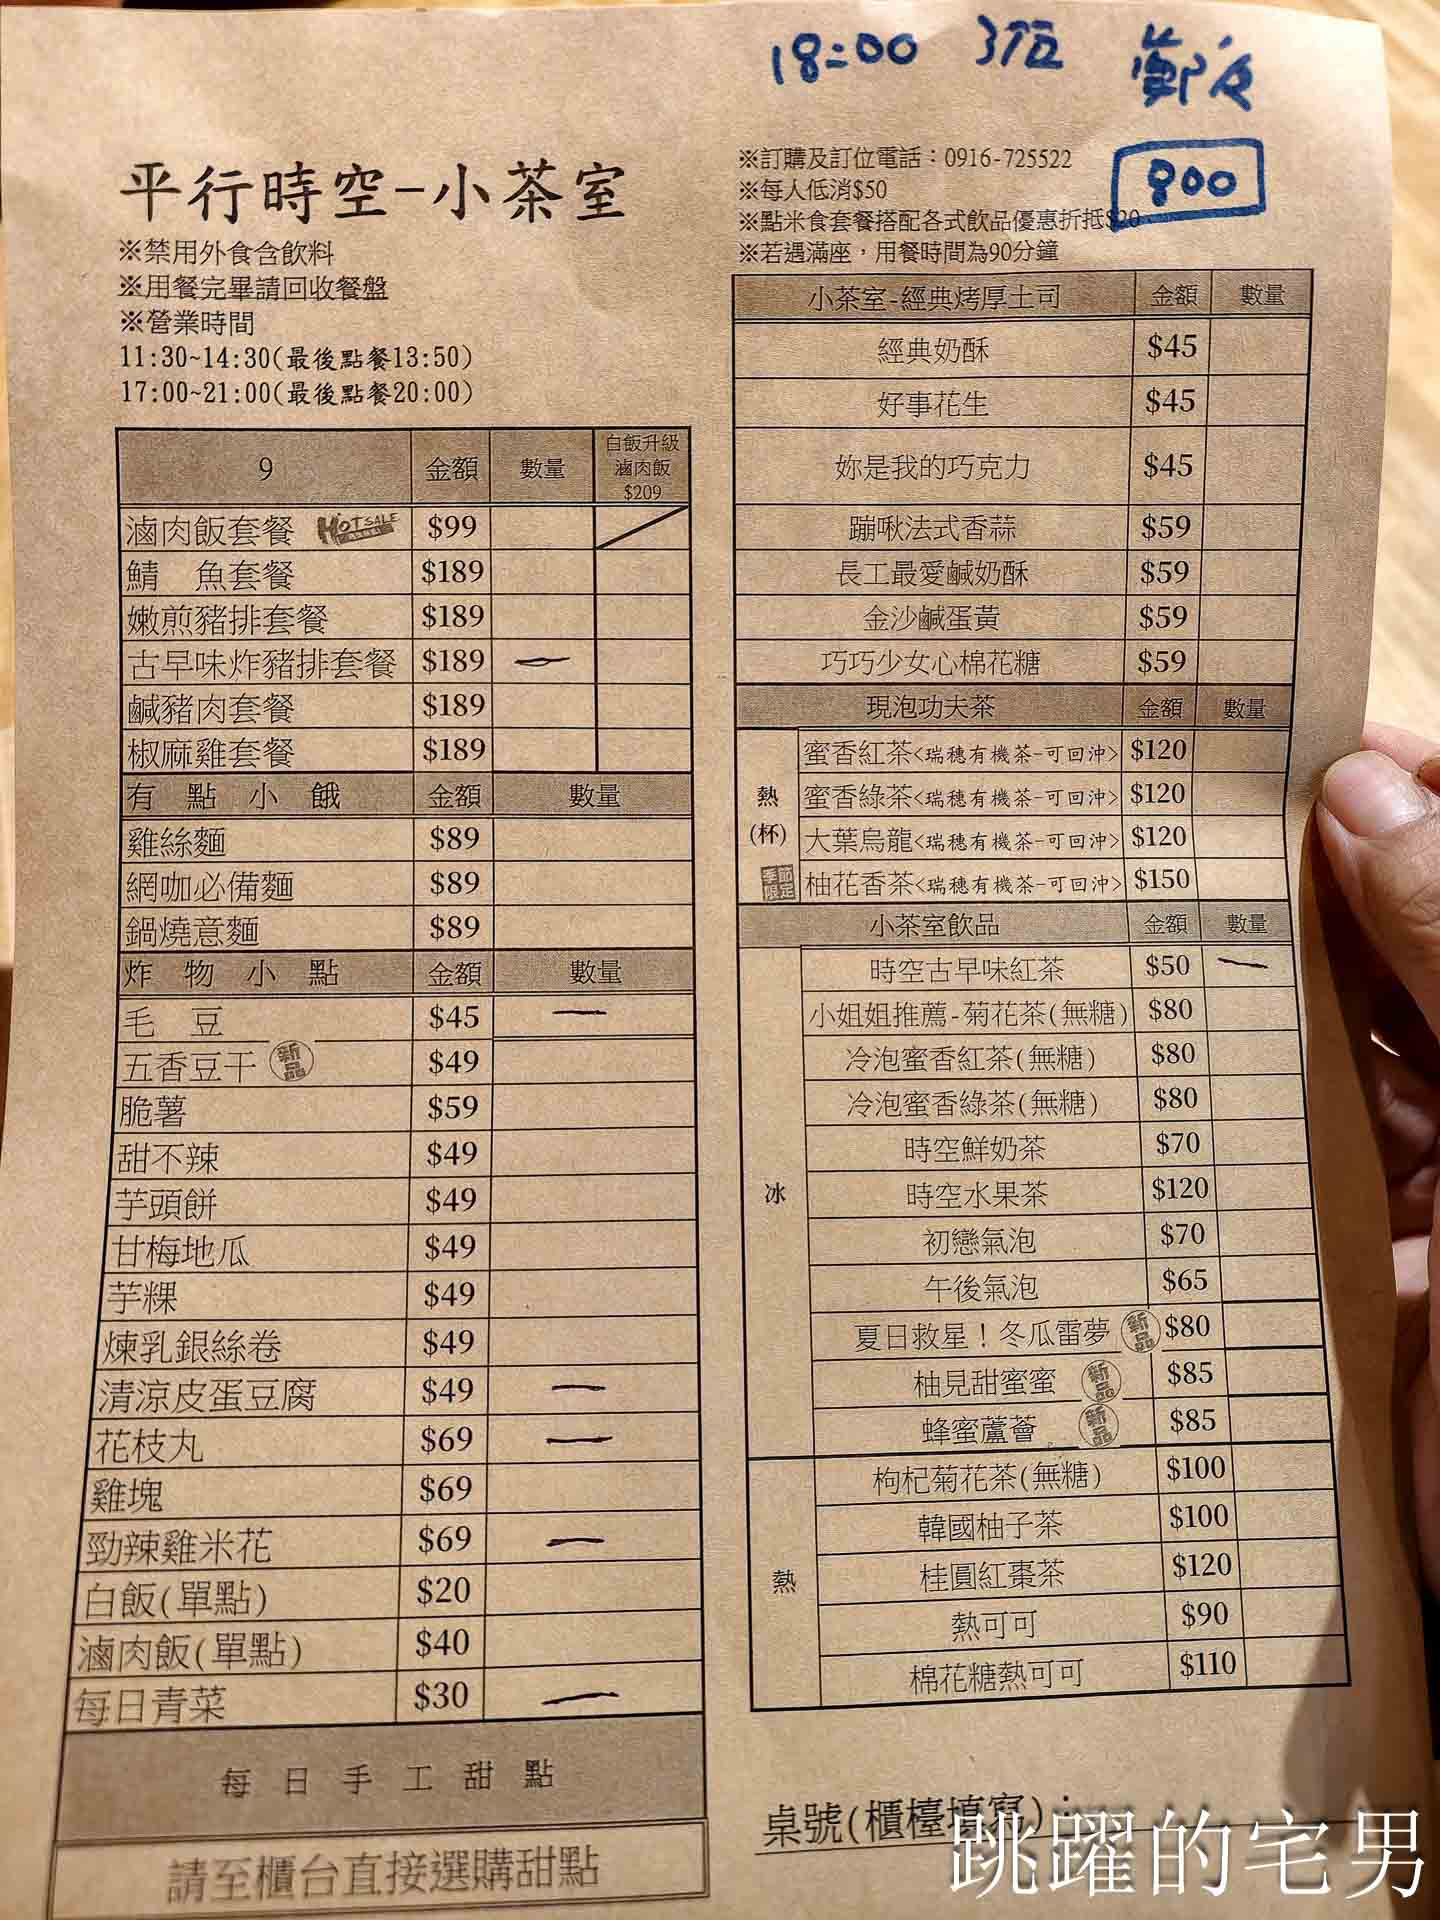 18:00 3位
800
平行時空-小茶室
※禁用外食含飲料
※用餐完畢請回收餐盤
※營業時間
11:30~14:30(最後點餐13:50)
17:00~21:00(最後點餐20:00)
※訂購及訂位電話：0916-725522
※每人低消$50
※點米食套餐搭配各式飲品優惠折抵$20
※若遇滿座，用餐時間為90分鐘
9 金額 數量 白飯升級滷肉飯$209
滷肉飯套餐 HOT SALE $99
鯖 魚套餐 $189
嫩煎豬排套餐 $189
古早味炸豬排套餐 $189 一
鹹豬肉套餐 $189
椒麻雞套餐 $189
有點小餓 金額 數量
雞絲麵 $89
網咖必備麵 $89
鍋燒意麵 $89
炸物小點 金額 數量
毛 豆 $45 一
五香豆干 新品 $49
脆薯 $59
甜不辣 $49
芋頭餅 $49
甘梅地瓜 $49
芋粿 $49
煉乳銀絲卷 $49
清涼皮蛋豆腐 $49 一
花枝丸 $69 一
雞塊 $69
勁辣雞米花 $69 一
白飯(單點) $20
滷肉飯(單點) $40
每日青菜 $30 一
每日手工甜點
請至櫃台直接選購甜點
小茶室-經典烤厚土司 金額 數量
經典奶酥 $45
好事花生 $45
妳是我的巧克力 $45
蹦啾法式香蒜 $59
長工最愛鹹奶酥 $59
金沙鹹蛋黃 $59
巧巧少女心棉花糖 $59
現泡功夫茶 金額 數量
熱(杯)
蜜香紅茶<瑞穗有機茶-可回沖> $120
蜜香綠茶<瑞穗有機茶-可回沖> $120
大葉烏龍<瑞穗有機茶-可回沖> $120
季節限定 柚花香茶<瑞穗有機茶-可回沖> $150
小茶室飲品 金額 數量
冰
時空古早味紅茶 $50 一
小姐姐推薦-菊花茶(無糖) $80
冷泡蜜香紅茶(無糖) $80
冷泡蜜香綠茶(無糖) $80
時空鮮奶茶 $70
時空水果茶 $120
初戀氣泡 $70
午後氣泡 $65
夏日救星！冬瓜雷夢 新品 $80
柚見甜蜜蜜 新品 $85
蜂蜜蘆薈 新品 $85
熱
枸杞菊花茶(無糖) $100
韓國柚子茶 $100
桂圓紅棗茶 $120
熱可可 $90
棉花糖熱可可 $110
桌號(櫃檯填寫)：
跳躍的宅男